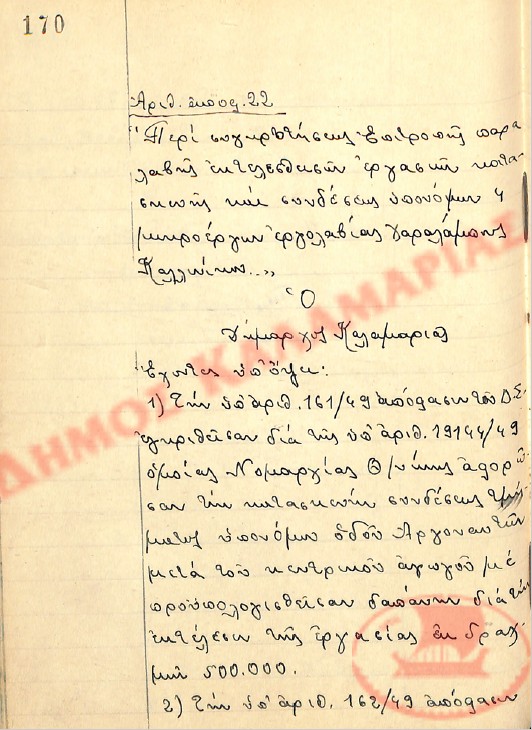 170
Ἀριθ. ἀποφ. 22
"Περί συγκροτήσεως Ἐπιτροπῆς παρα
λαβῆς ἐκτελεσθεισῶν ἐργασιῶν κατα-
σκευῆς καί συνδέσεως ὑπονόμων 4
μικροέργων ἐργολαβίας Χαραλάμπους
Καλλινίκου..„
Ὁ
Δήμαρχος Καλαμαριᾶς
Ἔχοντες ὑπ' ὄψει:
1) Τήν ὑπ' ἀριθ. 161/49 ἀπόφασιν τοῦ Δ.Σ.
ἐγκριθεῖσαν διά τῆς ὑπ' ἀριθ. 19144/49
ὁμοίας Νομαρχίας Θ/νίκης ἀφορῶ
σαν τήν κατασκευήν συνδέσεως τμή
ματος ὑπονόμου ὁδοῦ Ἀργοναυτῶν
μετά τοῦ κεντρικοῦ ἀγωγοῦ μέ
προϋπολογισθεῖσαν δαπάνην διά τήν
ἐκτέλεσιν τῆς ἐργασίας ἐκ δραχ-
μῶν 500.000.
2) Τήν ὑπ' ἀριθ. 162/49 ἀπόφασιν
ΔΗΜΟΣ ΚΑΛΑΜΑΡΙΑΣ